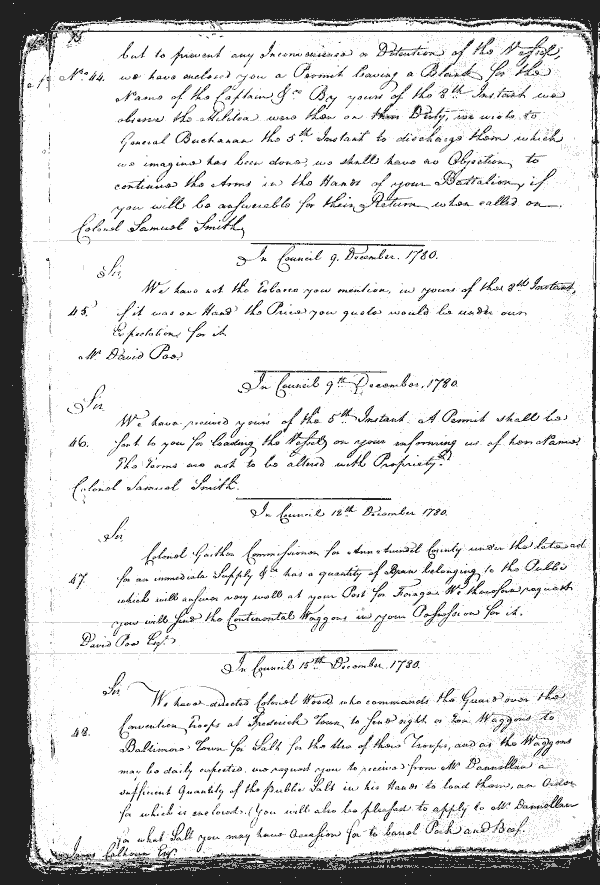 but to prevent any Inconvenience or Detention of the Vessel,
No. 44. we have enclosed you a Permit leaving a Blank for the
Name of the Captain &ca By yours of the 8th Instant we
observe the Militia were then on their Duty, we wrote to
General Buchanan the 5th Instant to discharge them which
we imagine has been done, we shall have no Objection, to
continue the Arms in the Hands of your Battalion, if
you will be answerable for their Return when called on.
Colonel Samuel Smith,
In Council 9. December. 1780.
Sir
We have not the Tobacco you mention, in yours of the 8th Instant,
45. if it was on Hand the Price you quote would be under our
Expectations for it
Mr. David Poe.
In Council 9th December, 1780.
Sir
We have received yours of the 5th Instant. A Permit shall be
46. sent to you for loading the Vessel, on your informing us of her Name.
The Terms are not to be altered with Propriety.
Colonel Samuel Smith.
In Council 12th December 1780.
Sir
Colonel Gaither Commissioner for Ann Arundel County under the late act
47. for an immediate Supply &ca has a quantity of Bran belonging to the Public
which will answer very well at your Post for Forage. We therefore request
you will send the Continental Waggons in your Possession for it.
David Poe Esqr.
In Council 15th December. 1780.
Sir
We have directed Colonel Wood who commands the Guard over the
48. Convention Troops at Frederick Town, to send eight or ten Waggons to
Baltimore Town for Salt for the Use of those Troops, and as the Waggons
may be daily expected, we request you to receive from Mr Dannellan a
sufficient Quantity of the public Salt in his Hands to load them, an Order
for which is enclosed. (You will also be pleased to apply to Mr Dannellan
for what Salt you may have Occasion for to barrel Pork and Beef.
James Calhoun Esqr.